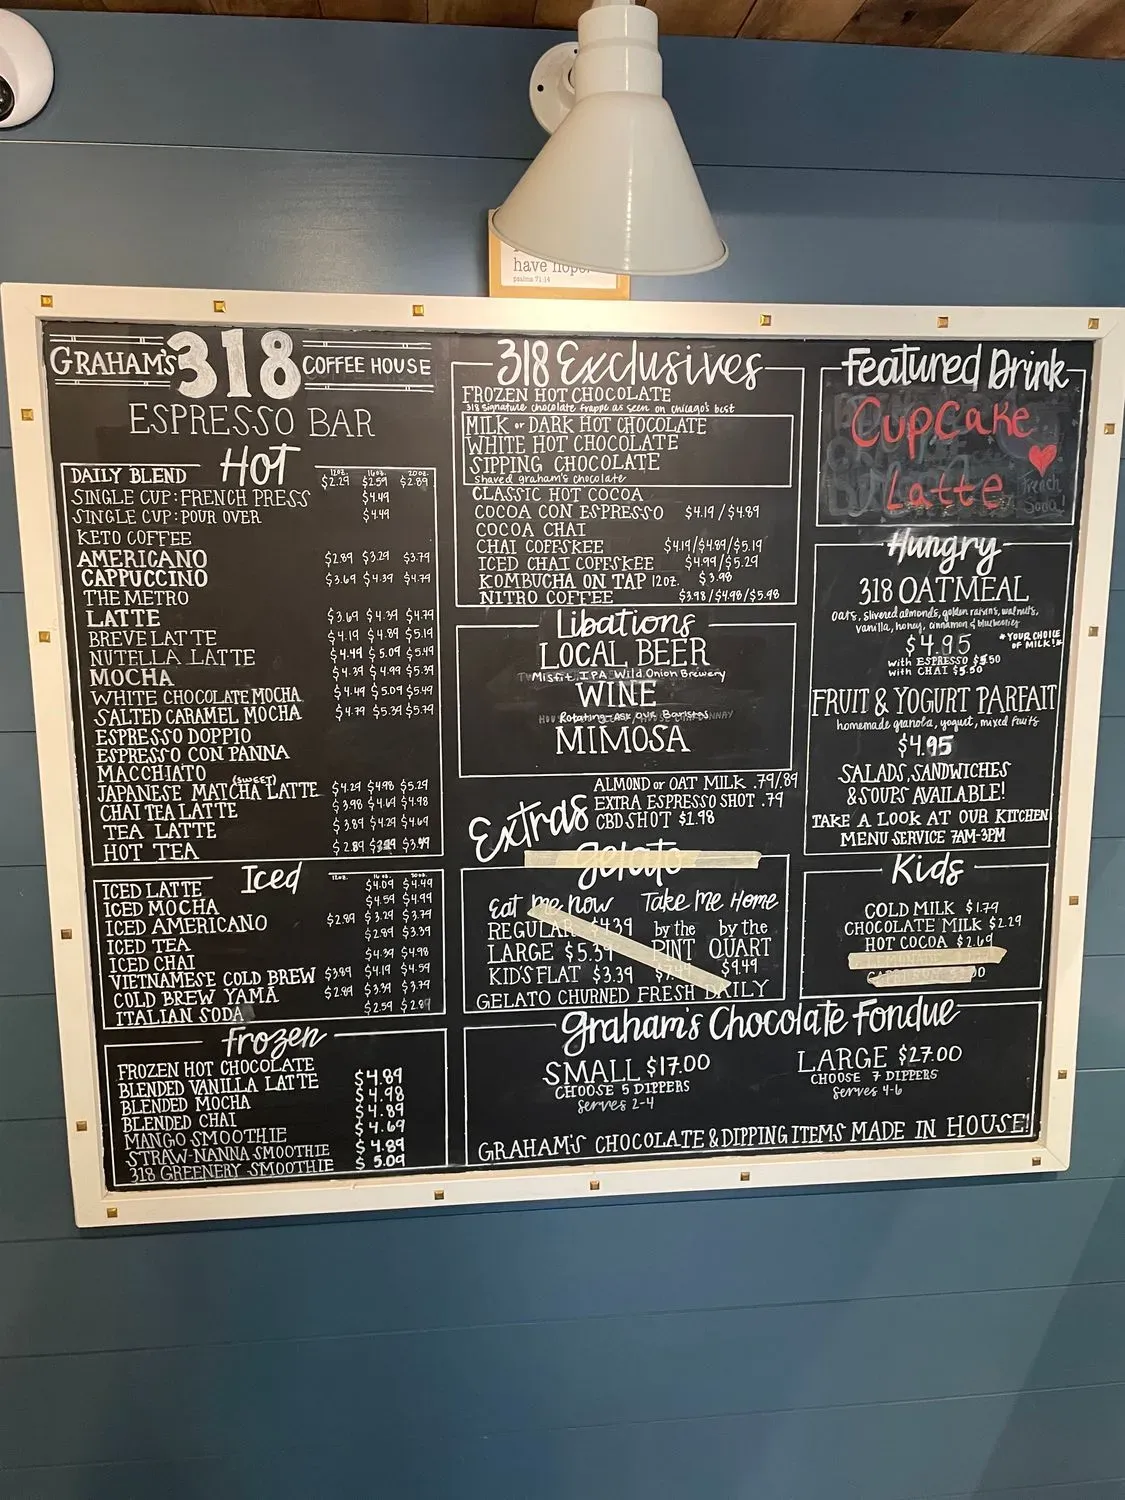 have hope.
psalms 71:14
GRAHAM'S 318 COFFEE HOUSE
ESPRESSO BAR
Hot
12oz. 16oz. 20oz.
DAILY BLEND $2.29 $2.59 $2.89
SINGLE CUP: FRENCH PRESS $4.49
SINGLE CUP: POUR OVER $4.49
KETO COFFEE
AMERICANO $2.89 $3.29 $3.79
CAPPUCCINO $3.69 $4.39 $4.79
THE METRO
LATTE $3.69 $4.39 $4.79
BREVE LATTE $4.19 $4.89 $5.19
NUTELLA LATTE $4.49 $5.09 $5.49
MOCHA $4.39 $4.99 $5.39
WHITE CHOCOLATE MOCHA $4.49 $5.09 $5.49
SALTED CARAMEL MOCHA $4.79 $5.39 $5.79
ESPRESSO DOPPIO
ESPRESSO CON PANNA
MACCHIATO
(SWEET)
JAPANESE MATCHA LATTE $4.29 $4.98 $5.29
CHAI TEA LATTE $3.98 $4.69 $4.98
TEA LATTE $3.89 $4.29 $4.69
HOT TEA $2.89
Iced
12oz. 16oz. 20oz.
ICED LATTE $4.09 $4.49
ICED MOCHA $4.59 $4.99
ICED AMERICANO $2.89 $3.29 $3.79
ICED TEA $2.89 $3.39
ICED CHAI $4.39 $4.98
VIETNAMESE COLD BREW $3.89 $4.19 $4.59
COLD BREW YAMA $2.89 $3.39 $3.79
ITALIAN SODA $2.59 $2.89
Frozen
FROZEN HOT CHOCOLATE
BLENDED VANILLA LATTE $4.89
BLENDED MOCHA $4.98
BLENDED CHAI $4.89
MANGO SMOOTHIE $4.69
STRAW-NANNA SMOOTHIE $4.89
318 GREENERY SMOOTHIE $5.09
318 Exclusives
FROZEN HOT CHOCOLATE
318 signature chocolate frappe as seen on chicago's best
MILK or DARK HOT CHOCOLATE
WHITE HOT CHOCOLATE
SIPPING CHOCOLATE
shaved graham's chocolate
CLASSIC HOT COCOA
COCOA CON ESPRESSO $4.19/$4.89
COCOA CHAI
CHAI COFFSKEE $4.19/$4.89/$5.19
ICED CHAI COFFSKEE $4.99/$5.29
KOMBUCHA ON TAP 12oz. $3.98
NITRO COFFEE $3.98/$4.98/$5.98
Libations
LOCAL BEER
Misfit, IPA, Wild Onion Brewery
WINE
Rotating, ask our Baristas
MIMOSA
Extras
ALMOND or OAT MILK .79/.89
EXTRA ESPRESSO SHOT .79
CBD SHOT $1.98
gelato
Eat me now Take Me Home
REGULAR $4.39 by the by the
LARGE $5.39 PINT QUART
KID'S FLAT $3.39 $9.49
GELATO CHURNED FRESH DAILY
Featured Drink
Cupcake
Latte
French
Soda!
Hungry
318 OATMEAL
oats, slivered almonds, golden raisins, walnuts,
vanilla, honey, cinnamon & blueberries
$4.95
*YOUR CHOICE
OF MILK!*
with ESPRESSO $5.50
with CHAI $5.50
FRUIT & YOGURT PARFAIT
homemade granola, yogurt, mixed fruits
$4.95
SALADS, SANDWICHES
& SOUPS AVAILABLE!
TAKE A LOOK AT OUR KITCHEN
MENU SERVICE 7AM-3PM
Kids
COLD MILK $1.79
CHOCOLATE MILK $2.29
HOT COCOA $2.69
Graham's Chocolate Fondue
SMALL $17.00
CHOOSE 5 DIPPERS
serves 2-4
LARGE $27.00
CHOOSE 7 DIPPERS
serves 4-6
GRAHAM'S CHOCOLATE & DIPPING ITEMS MADE IN HOUSE!